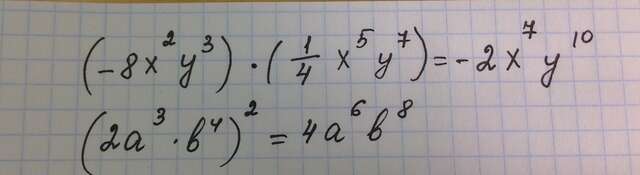 (-8x²y³)·(1/4 x⁵y⁷)=-2x⁷y¹⁰
(2a³·b⁴)²=4a⁶b⁸